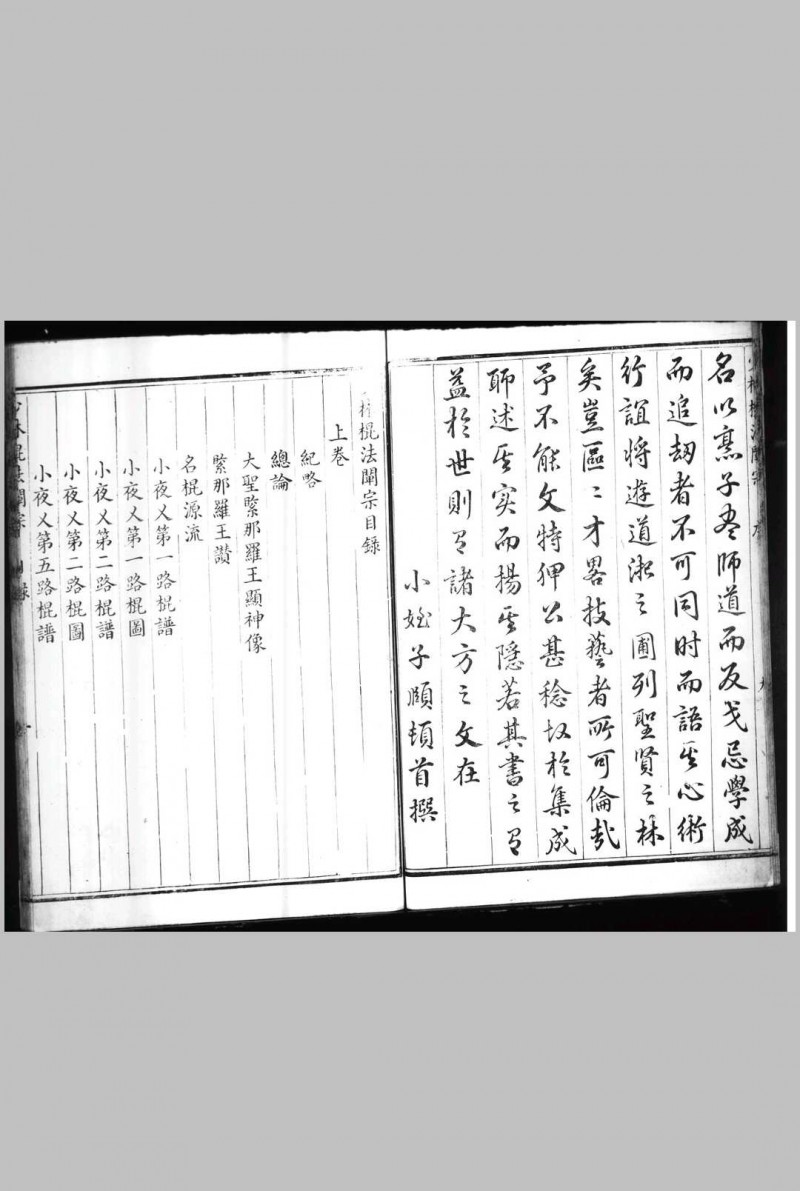 少林棍法闡宗 序
名以熏子存師道而反戈忌學成
而追刼者不可同时而語其心術
行誼將遊道淑之圃列聖賢之林
矣豈區〻才畧技藝者所可倫哉
予不能文特狎公甚稔故於集成
聊述其实而揚其隱若其書之有
益於世則有諸大方之文在
小姪子頤頓首撰
林棍法闡宗目録
上卷
紀略
總論
大聖緊那羅王顯神像
緊那羅王讚
名棍源流
小夜乂第一路棍譜
小夜乂第一路棍圖
小夜乂第二路棍譜
小夜乂第二路棍圖
小夜乂第五路棍譜
少林棍法闡宗 目録